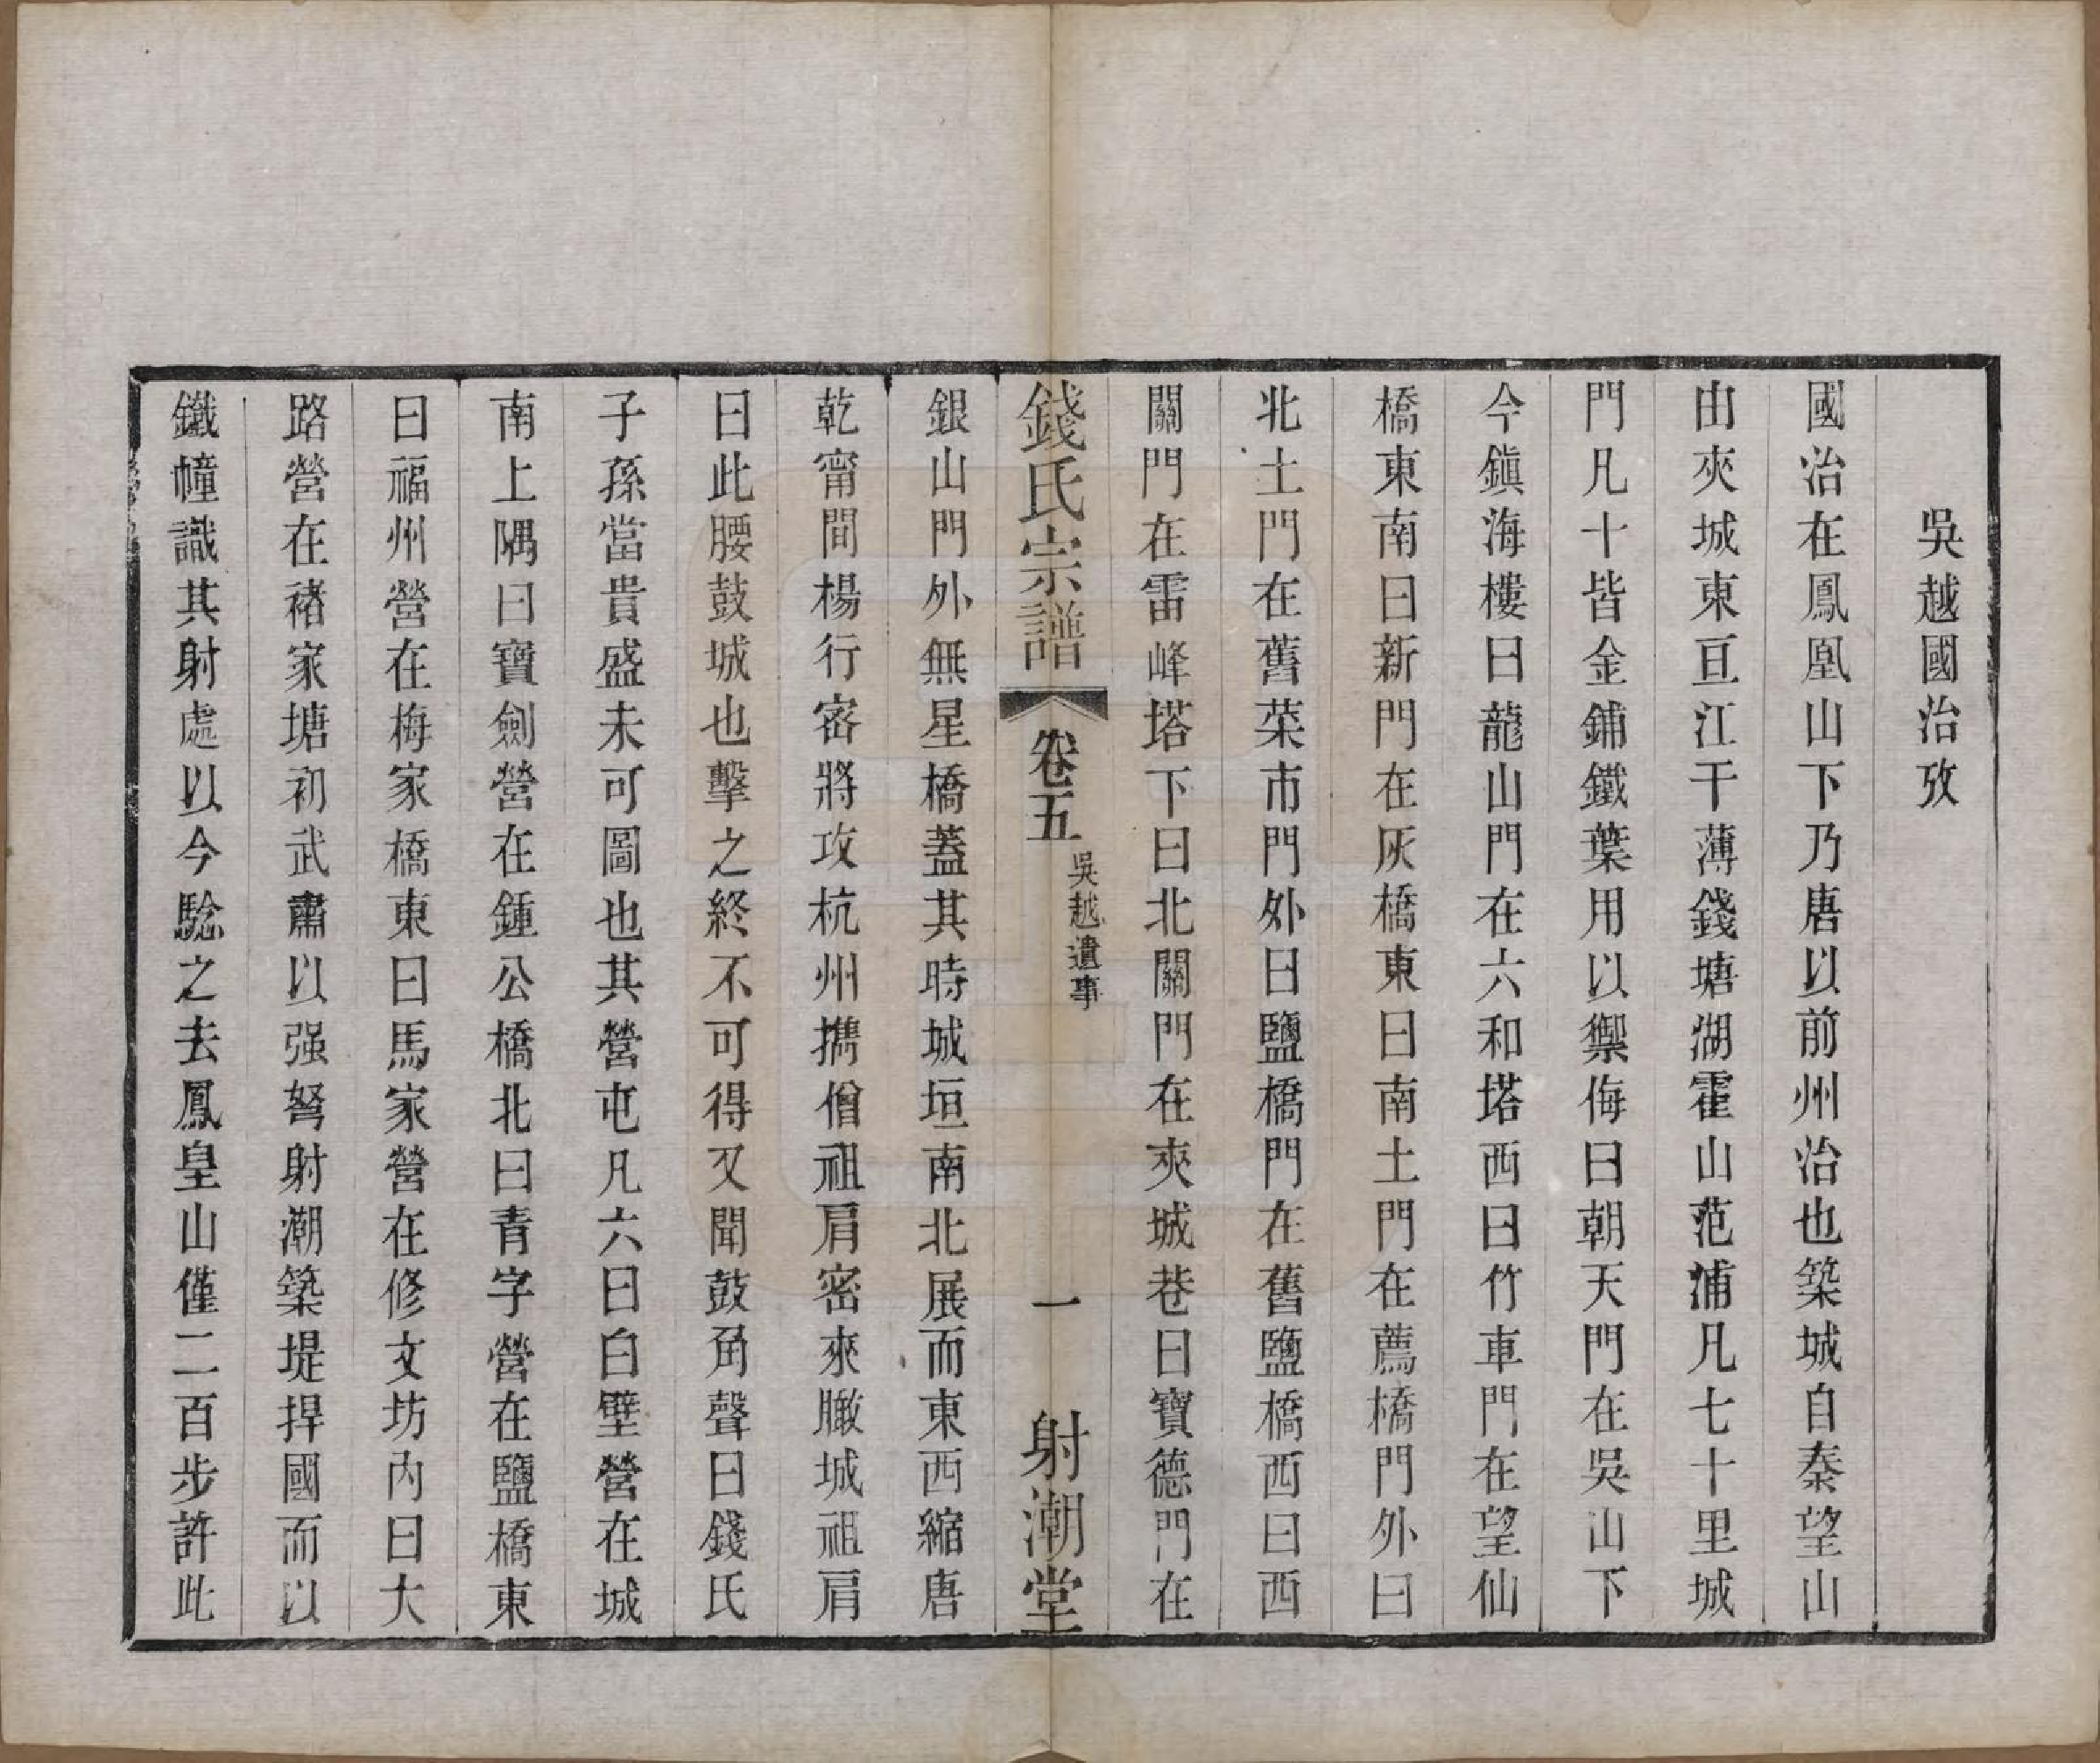 吳越國治攷
國治在鳳凰山下乃唐以前州治也築城自秦望山
由夾城東亘江干薄錢塘湖霍山范浦凡七十里城
門凡十皆金鋪鐵葉用以禦侮曰朝天門在吳山下
今鎭海樓曰龍山門在六和塔西曰竹車門在望仙
橋東南曰新門在灰橋東曰南土門在薦橋門外曰
北土門在舊菜市門外曰鹽橋門在舊鹽橋西曰西
關門在雷峰塔下曰北關門在夾城巷曰寶德門在
錢氏宗譜
卷五
吳越遺事
一
射潮堂
銀山門外無星橋蓋其時城垣南北展而東西縮唐
乾甯間楊行密將攻杭州攜僧祖肩密來瞰城祖肩
曰此腰鼓城也擊之終不可得又聞鼓角聲曰錢氏
子孫當貴盛未可圖也其營屯凡六曰白壁營在城
南上隅曰寶劍營在鍾公橋北曰青字營在鹽橋東
曰福州營在梅家橋東曰馬家營在修文坊內曰大
路營在褚家塘初武肅以强弩射潮築堤捍國而以
鐵幢識其射處以今騐之去鳳皇山僅二百步許此